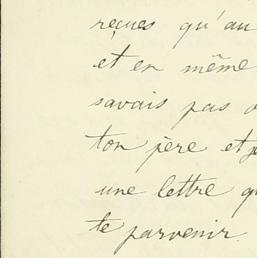 reçues qu'au
et en même
savais pas
ton père et
une lettre
te parvenir